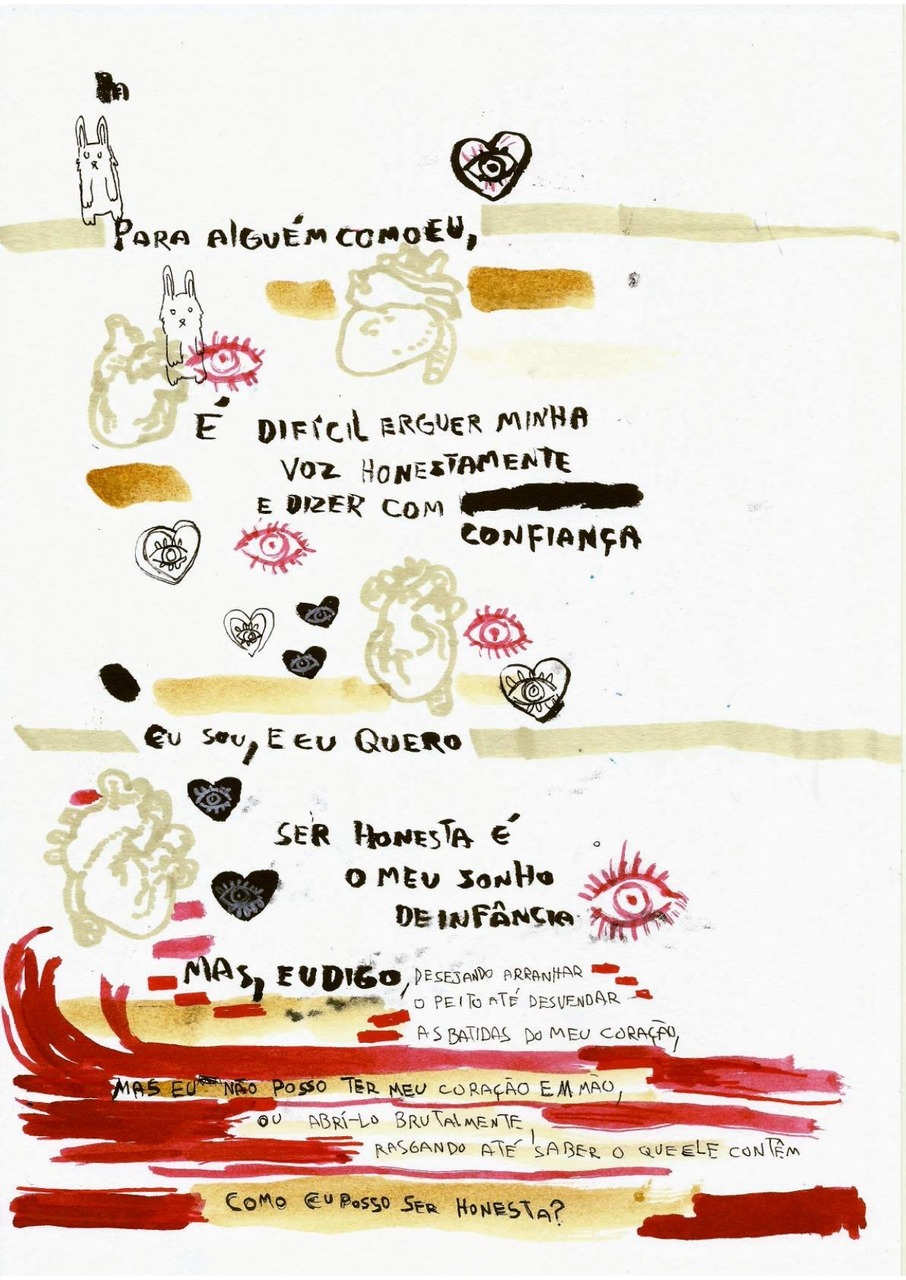 PARA ALGUÉM COMO EU,
É DIFÍCIL ERGUER MINHA
VOZ HONESTAMENTE
E DIZER COM
CONFIANÇA
EU SOU, E EU QUERO
SER HONESTA É
O MEU SONHO
DE INFÂNCIA
MAS, EU DIGO, DESEJANDO ARRANHAR
O PEITO ATÉ DESVENDAR
AS BATIDAS DO MEU CORAÇÃO,
MAS EU NÃO POSSO TER MEU CORAÇÃO EM MÃO,
OU ABRÍ-LO BRUTALMENTE,
RASGANDO ATÉ SABER O QUE ELE CONTÊM
COMO EU POSSO SER HONESTA?